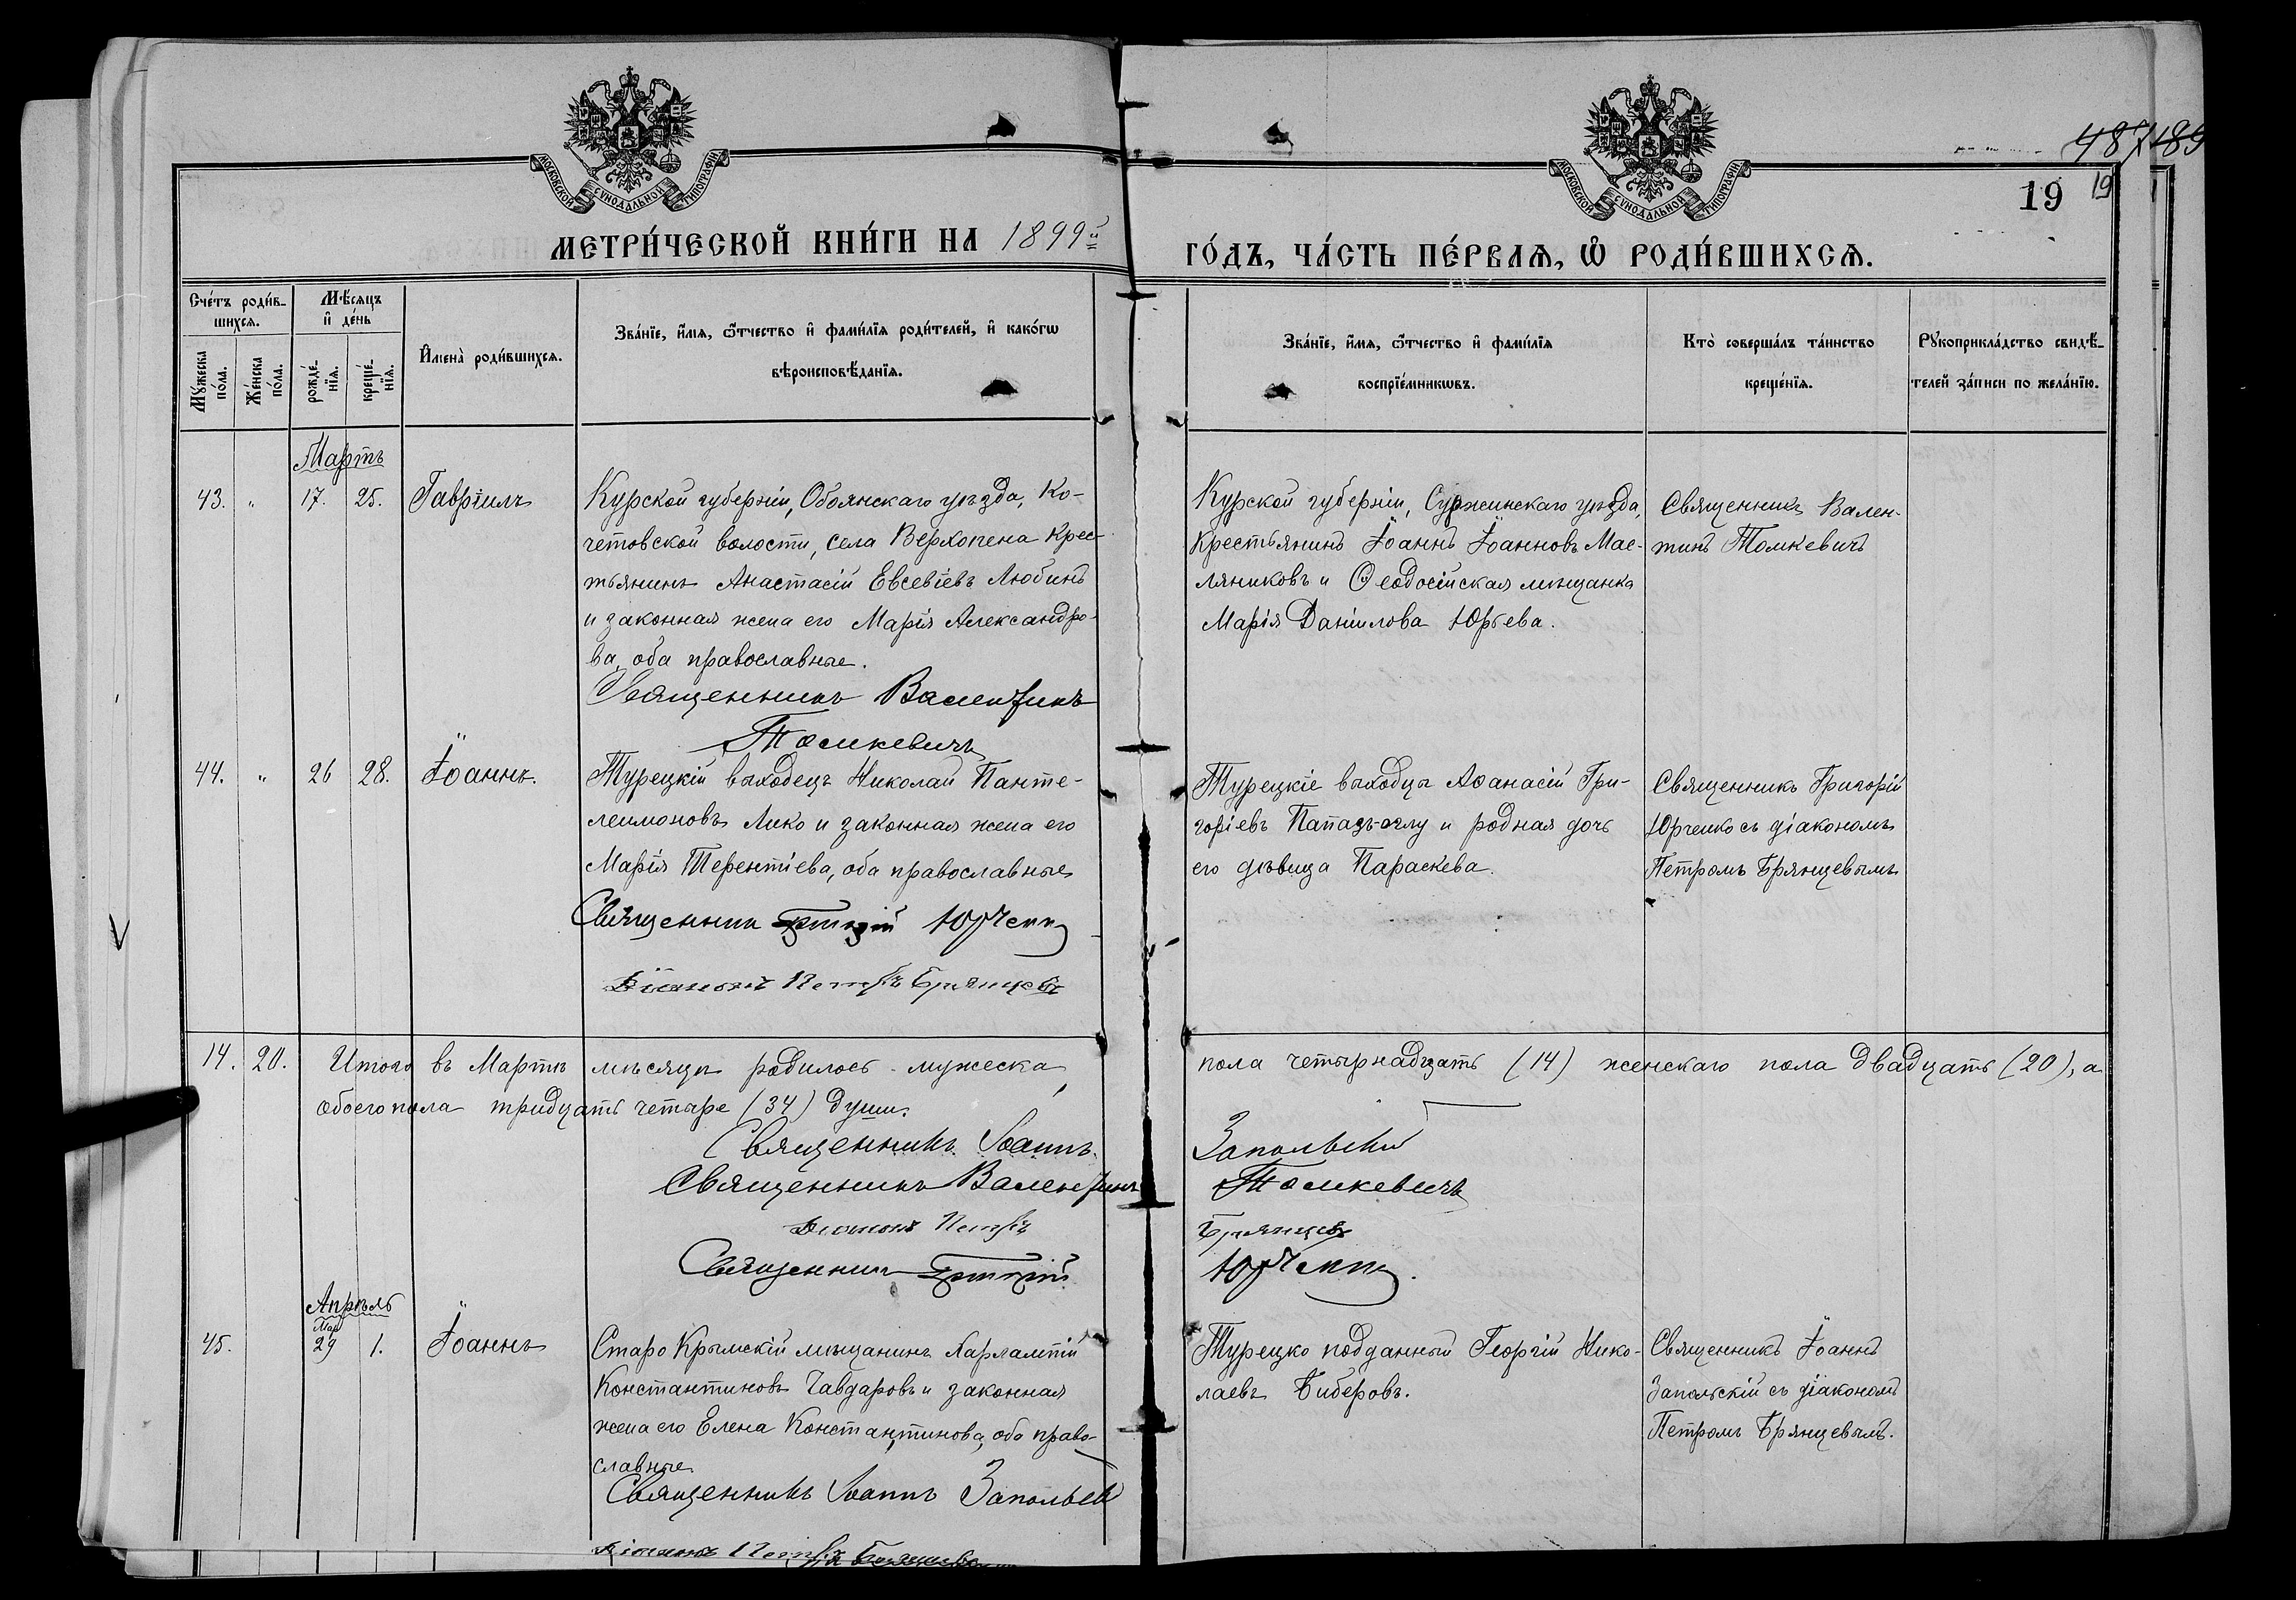 МОСКОВСКОЙ СѴНОДАЛЬНОЙ ТИПОГРАФІИ
МОСКОВСКОЙ СѴНОДАЛЬНОЙ ТИПОГРАФІИ
487 489
19 19
МЕТРИ́ЧЕСКОЙ КНИ́ГИ НА 1899й
ГО́ДЪ, ЧА́СТЬ ПЕ́РВАѦ, Ѡ҆ РОДИ́ВШИХСѦ.
Сче́тъ роди́в-
шихсѧ.
Мꙋ́жеска по́ла.
Же́нска по́ла.
Мѣ́сѧцъ
и҆ де́нь
рожде́-
нїѧ.
креще́-
нїѧ.
И҆мена̀ роди́вшихсѧ.
Зва́нїе, и҆́мѧ, ѻ҆́тчество и҆ фами́лїѧ роди́телей, и҆ како́гѡ
вѣроисповѣ́данїѧ.
Зва́нїе, и҆́мѧ, ѻ҆́тчество и҆ фами́лїѧ
воспрїе́мникѡвъ.
Кто̀ соверша́лъ та́инство
креще́нїѧ.
Рꙋкоприкла́дство свидѣ́-
телей за́писи по жела́нїю.
Мартъ
43. " 17. 25. Гавріилъ
Курской губерніи, Обоянскаго уѣзда, Ко-
четовской волости, села Верхопена крес-
тьянинъ Анастасій Евсевіевъ Любинъ
и законная жена его Марія Александро-
ва, оба православные.
Священникъ Валентинъ
Томкевичъ
Курской губерніи, Суджинскаго уѣзда,
крестьянинъ Іоаннъ Іоанновъ Мас-
ляниковъ и Ѳеодосійская мѣщанка
Марія Даніилова Юрьева.
Священникъ Вален-
тинъ Томкевичъ
44. " 26 28. Іоаннъ.
Турецкій выходецъ Николай Панте-
леимоновъ Лико и законная жена его
Марія Терентіева, оба православные
Священник Григорій Юрченко
Діаконъ Петръ Брянцевъ
Турецкіе выходцы Аѳанасій Гри-
горіевъ Папазъ-оглу и родная дочь
его дѣвица Параскева.
Священникъ Григорій
Юрченко съ діакономъ
Петромъ Брянцевымъ
14. 20. Итого въ Мартѣ мѣсяцѣ родилось мужеска
пола четырнадцать (14) женскаго пола двадцать (20), а
обоего пола тридцать четыре (34) души.
Священникъ Іоаннъ Запольскій
Священникъ Валентинъ Томкевичъ
Діаконъ Петръ Брянцевъ
Священник Григорій Юрченко.
Апрѣль
Мар
45. 29 1. Іоаннъ
Старо Крымскій мѣщанинъ Харлампій
Константиновъ Чавдаровъ и законная
жена его Елена Константинова, оба право-
славные
Священникъ Іоаннъ Запольскій
Діаконъ Петръ Брянцевъ
Турецко подданный Георгій Нико-
лаевъ Биберовъ.
Священникъ Іоаннъ
Запольскій съ діакономъ
Петромъ Брянцевымъ.